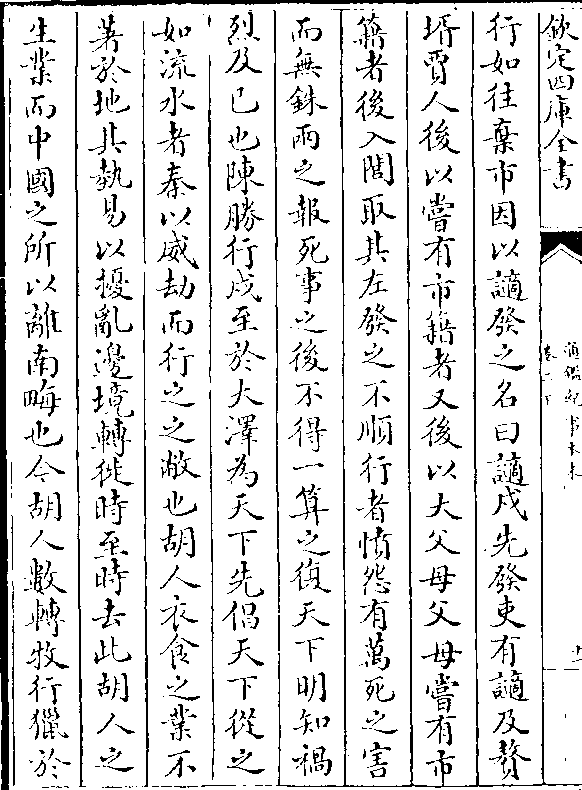 欽定四庫全書
通鑑紀事本末
卷二下
行如往棄市因以謫發之名曰謫戍先發吏有謫及贅
壻賈人後以嘗有市籍者又後以大父母父母嘗有市
籍者後入閭取其左發之不順行者憤怨有萬死之害
而無銖兩之報死事之後不得一算之復天下明知禍
烈及已也陳勝行戍至於大澤為天下先倡天下從之
如流水者秦以威劫而行之之敝也胡人衣食之業不
著於地其埶易以擾亂邊境轉徙時至時去此胡人之
生業而中國之所以離南畮也今胡人數轉牧行獵於